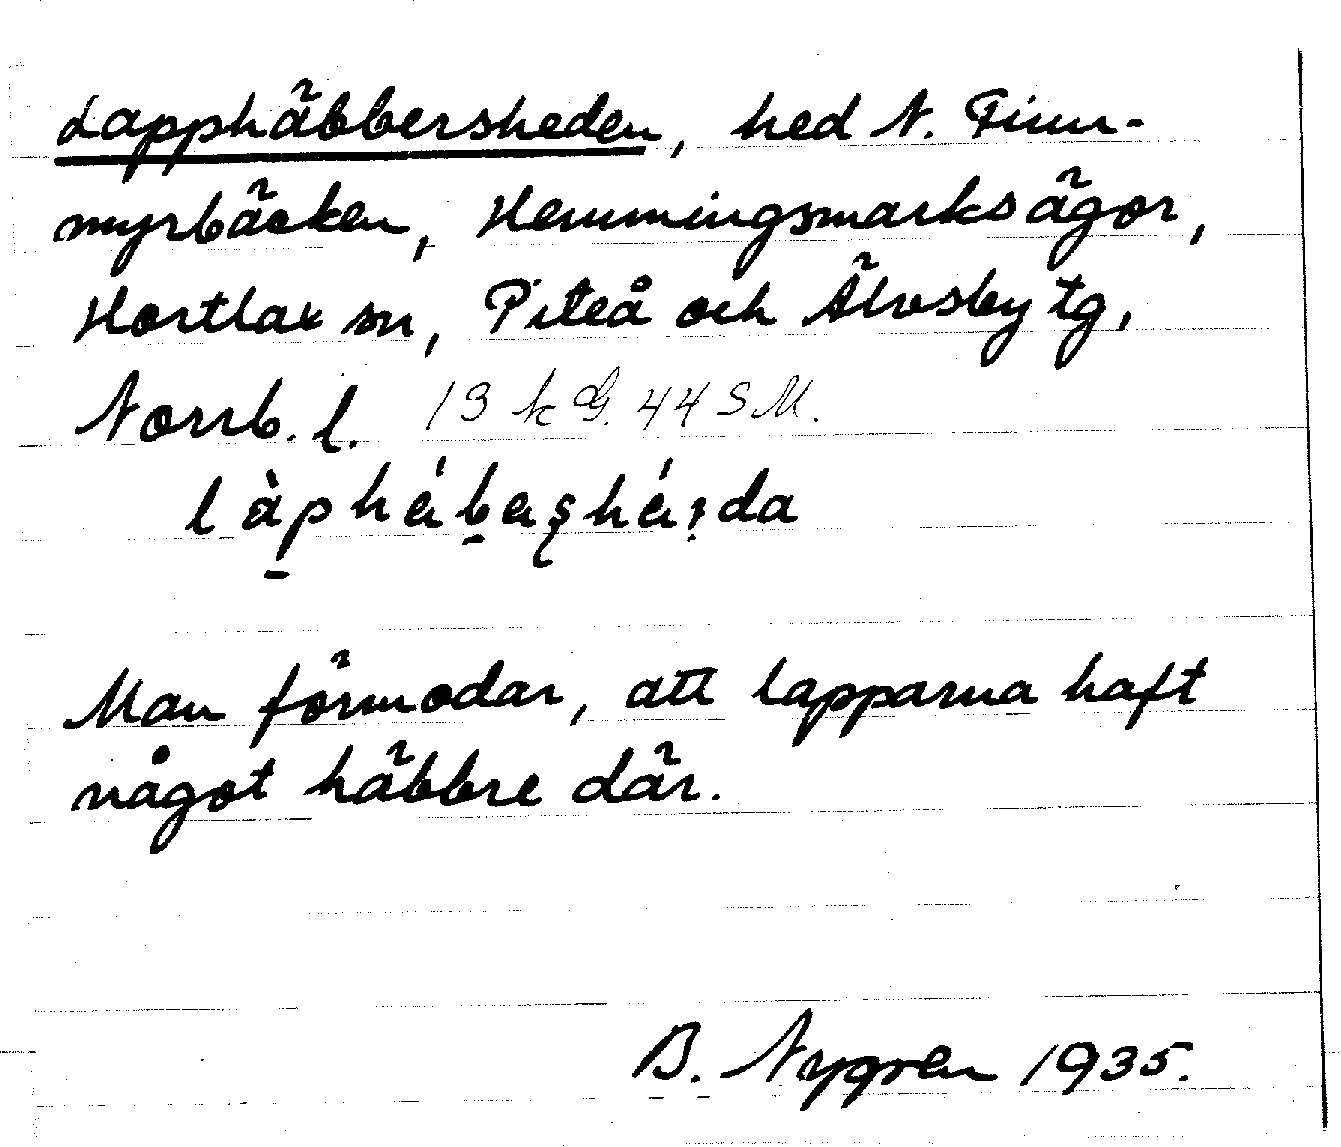 Lapphäbbersheden, hed N. Finn-
myrbäcken, Hemmingsmarksägor,
Hortlax sn, Piteå och Älvsby tg,
Norrb. l. 13 k G. 44 S M.
Man förmodar, att lapparna haft
något häbbre där.
B. Nygren 1935.